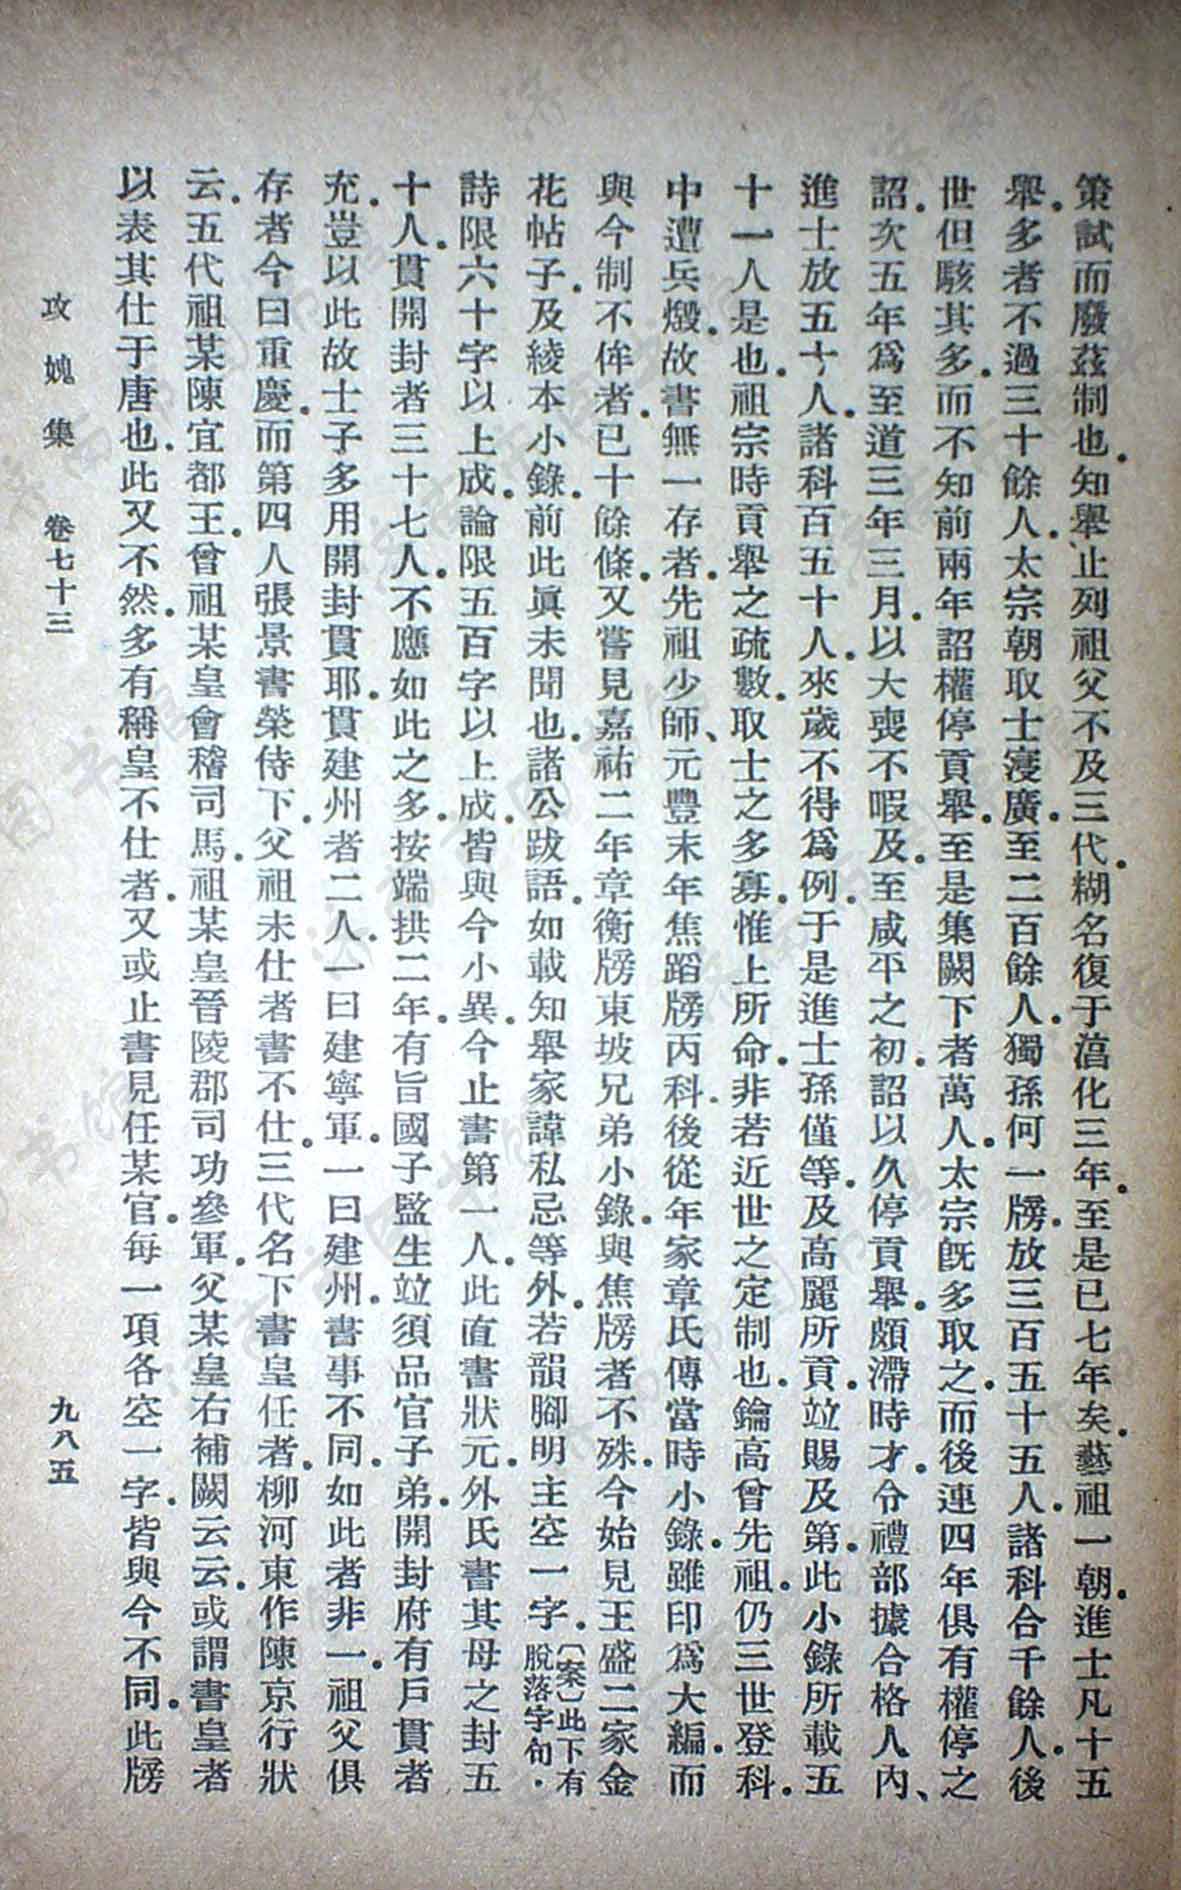 策試而廢茲制也。知舉、止列祖父不及三代。糊名復于淳化三年。至是已七年矣。藝祖一朝。進士凡十五
舉。多者不過三十餘人。太宗朝取士寖廣。至二百餘人。獨孫何一牓。放三百五十五人。諸科合千餘人。後
世但駭其多。而不知前兩年詔權停貢舉。至是集闕下者萬人。太宗旣多取之。而後連四年俱有權停之
詔。次五年爲至道三年三月。以大喪不暇及。至咸平之初。詔以久停貢舉。頗滯時才。令禮部據合格人內、
進士放五十人。諸科百五十人。來歲不得爲例。于是進士孫僅等。及高麗所貢。竝賜及第。此小錄所載五
十一人是也。祖宗時貢舉之疏數。取士之多寡。惟上所命。非若近世之定制也。鑰高曾先祖。仍三世登科。
中遭兵燬。故書無一存者。先祖少師、元豐末年焦蹈牓丙科。後從年家章氏傳當時小錄。雖印爲大編。而
與今制不侔者。已十餘條。又嘗見嘉祐二年章衡牓東坡兄弟小錄。與焦牓者不殊。今始見王盛二家金
花帖子。及綾本小錄。前此眞未聞也。諸公跋語。如載知舉家諱私忌等外。若韻腳明主空一字。〔案〕此下有脫落字句。
詩限六十字以上成。論限五百字以上成。皆與今小異。今止書第一人。此直書狀元。外氏書其母之封五
十人。貫開封者三十七人。不應如此之多。按端拱二年。有旨國子監生竝須品官子弟。開封府有戶貫者
充。豈以此故士子多用開封貫耶。貫建州者二人。一曰建寧軍。一曰建州。書事不同。如此者非一。祖父俱
存者今曰重慶。而第四人張景書榮侍下。父祖未仕者書不仕。三代名下書皇任者。柳河東作陳京行狀
云。五代祖某陳宜都王。曾祖某皇會稽司馬。祖某皇晉陵郡司功參軍。父某皇右補闕云云。或謂書皇者
以表其仕于唐也。此又不然。多有稱皇不仕者。又或止書見任某官。每一項各空一字。皆與今不同。此牓
攻媿集 卷七十三 九八五